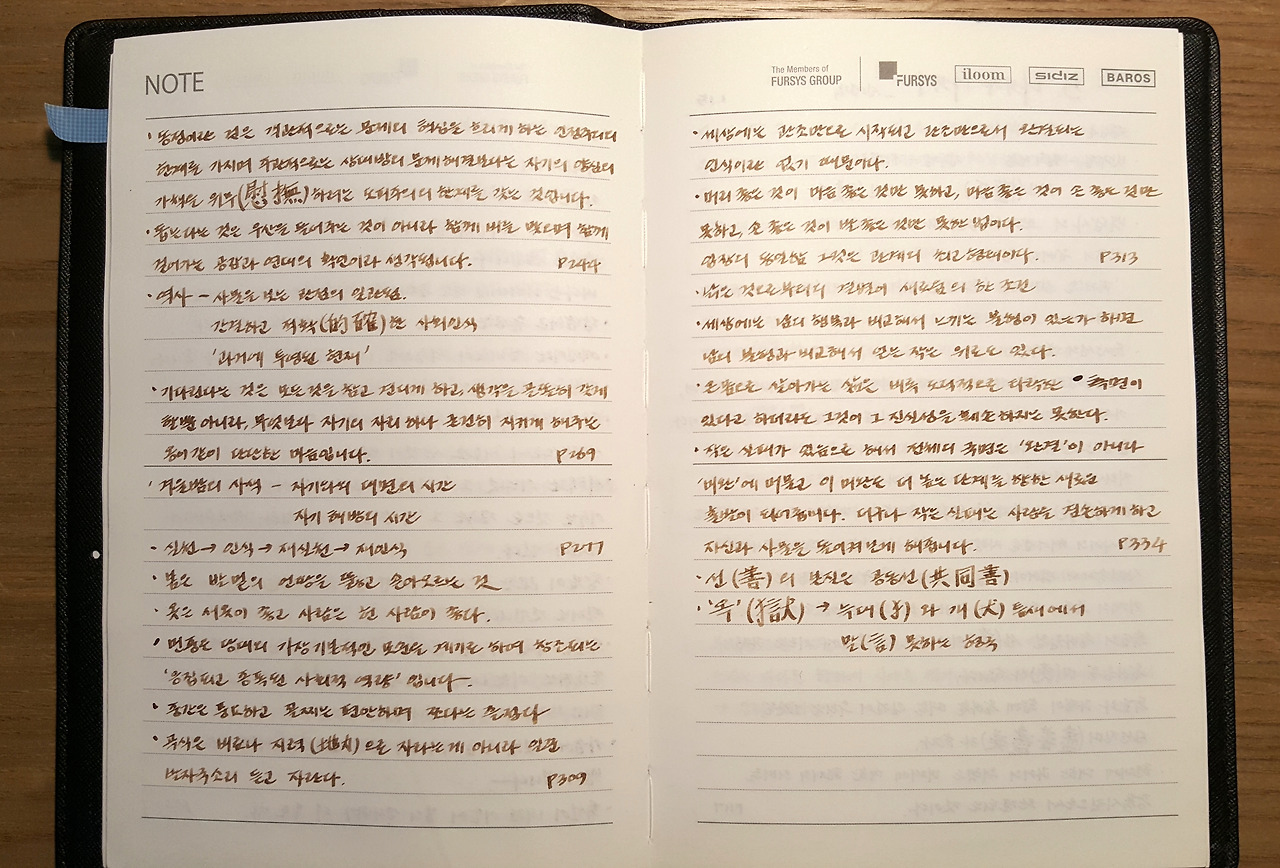 NOTE
· 동정이란 것은 객관적으로는 문제의 핵심을 흐리게 하는 인정주의의
한계를 가지며 주관적으로는 상대방의 문제해결보다는 자기의 양심의
가책을 위무(慰撫)하려는 도피주의의 한계를 갖는 것입니다.
· 돕는다는 것은 우산을 들어주는 것이 아니라 함께 비를 맞으며 함께
걸어가는 공감과 연대의 확인이라 생각됩니다. P244
· 역사 - 사물을 보는 관점의 일관됨.
간결하고 적확(的確)한 사회인식
'과거에 투영된 현재'
· 기다린다는 것은 모든 것을 참고 견디게 하고, 생각을 골똘히 갖게
할뿐 아니라, 무엇보다 자기의 자리 하나 굳건히 지키게 해주는
옹이같이 단단한 마음입니다. P269
· 겨울밤의 사색 - 자기와의 대면의 시간
자기 해방의 시간
· 실천→ 인식→ 재실천→ 재인식 P277
· 봄은 반멸의 언땅을 뚫고 솟아오르는 것
· 옷은 새옷이 좋고 사람은 헌 사람이 좋다.
· 명창도 당대의 가장 기본적인 모순을 계기로 하여 창조되는
'응집되고 증폭된 사회적 역량' 입니다.
· 중간은 풍요하고
· 곡식은 비료나 지력(地力)으로 자라는게 아니라 일꾼
발자국소리 듣고 자란다. P309
The Members of
FURSYS GROUP
FURSYS
iloom
SIDIZ
BAROS
· 세상에는 관조만으로 시작되고 관조만으로서 완결되는
인식이란 없기 때문이다.
· 머리 좋은 것이 마음 좋은 것만 못하고, 마음 좋은 것이 손 좋은 것만
못하고, 손 좋은 것이 발 좋은 것만 못한 법이다.
입장의 동일함 그것은 관계의 최고형태이다. P313
· 낡은 것으로부터의 결별이 새로움의 한 조건
· 세상에는 남의 행복과 비교해서 느끼는 불행이 있는가 하면
남의 불행과 비교해서 얻은 작은 위로도 있다.
· 온몸으로 살아가는 삶은 비록 도덕적으로 타락한 측면이
있다고 하더라도 그것이 그 진실성을 훼손하지는 못한다.
· 작은 실패가 있음으로 해서 전체의 국면은 '완결'이 아니라
'미완'에 머물고 이 미완은 더 높은 단계를 향한 새로운
출발이 되어줍니다. 더구나 작은 실패는 사람을 겸손하게 하고
자신과 사물을 돌이켜보게 해줍니다. P334
· 선(善)의 본질은 공동선(共同善)
· '옥'(獄) → 늑대(犭)와 개(犬) 틈새에서
말(言) 못하는 형국